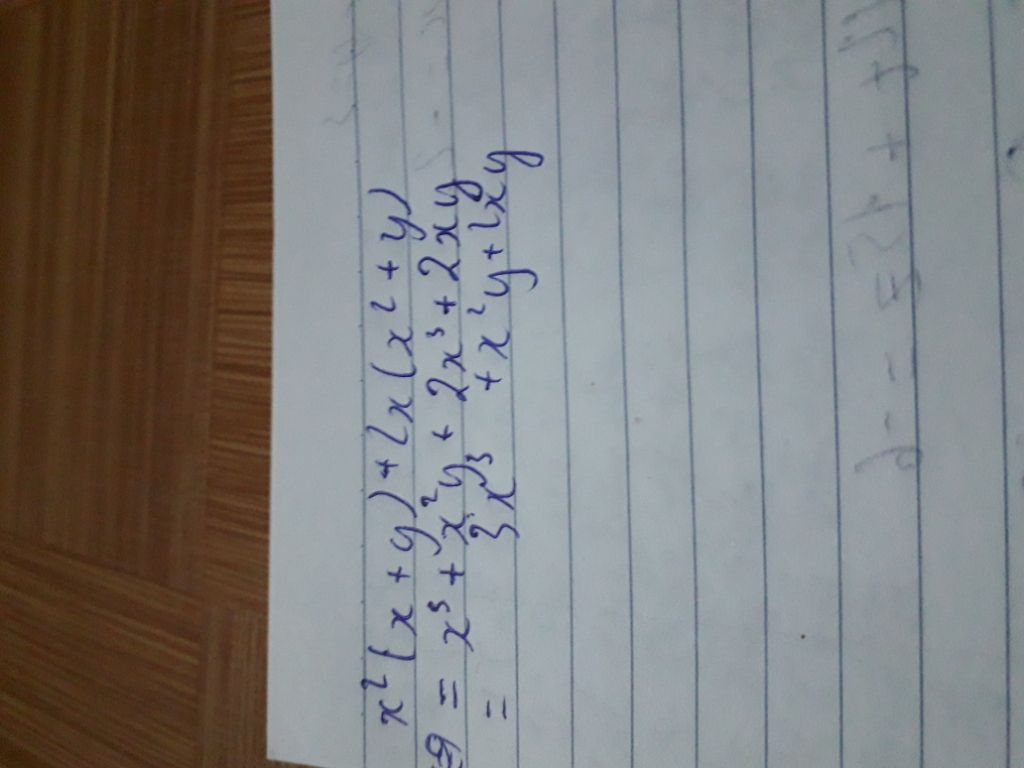 x²(x+y)+2x(x²+y)
9 = x³+x²y+2x³+2xy
= 3x³ +x²y+2xy